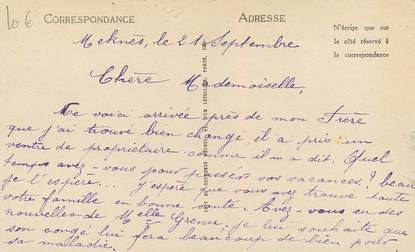 10 €
CORRESPONDANCE
ADRESSE
N'écrire que sur
le côté réservé à
la correspondance
Meknès, le 21 Septembre
Chère Mademoiselle,
Me voici arrivée près de mon Frère
que j'ai trouvé bien changé, il a pris un
ventre de propriétaire comme il m'a dit. Quel
temps avez-vous pour passer vos vacances, ? beau
je l'espère... J'espère que vous avez trouvé toute
votre famille en bonne santé. Avez-vous eu des
nouvelles de Melle je lui souhaite que
son congé lui fera beaucoup de bien pour
sa maladie.